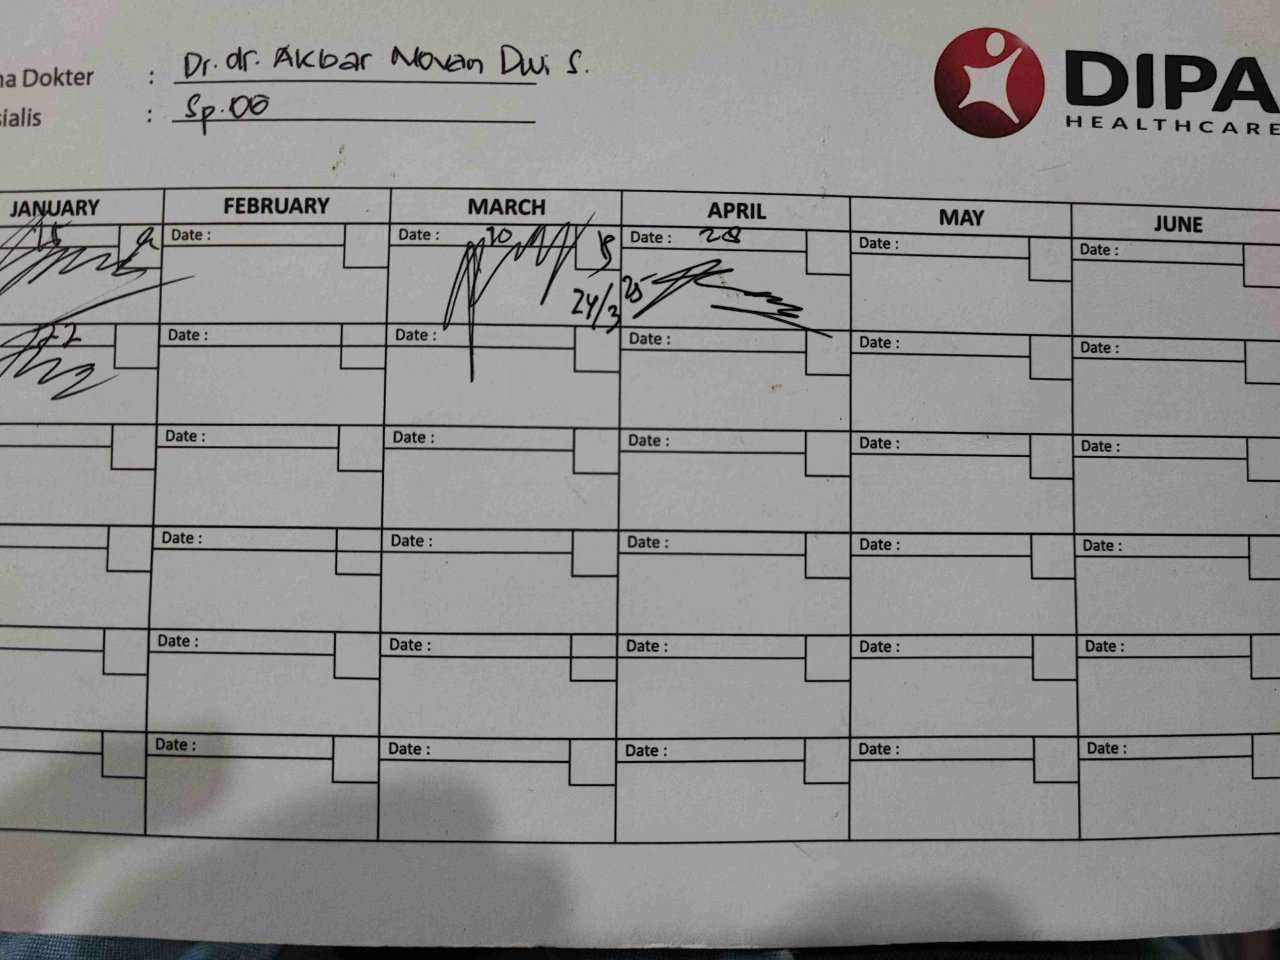 na Dokter : Dr. dr. Akbar Novan Dwi S.
sialis : Sp.OG
DIPA
HEALTHCARE
JANUARY FEBRUARY MARCH APRIL MAY JUNE
15 Date : Date : 10 Date : 28 Date : Date :
24/3 25
22 Date : Date : Date : Date : Date :
Date : Date : Date : Date : Date :
Date : Date : Date : Date : Date :
Date : Date : Date : Date : Date :
Date : Date : Date : Date : Date :